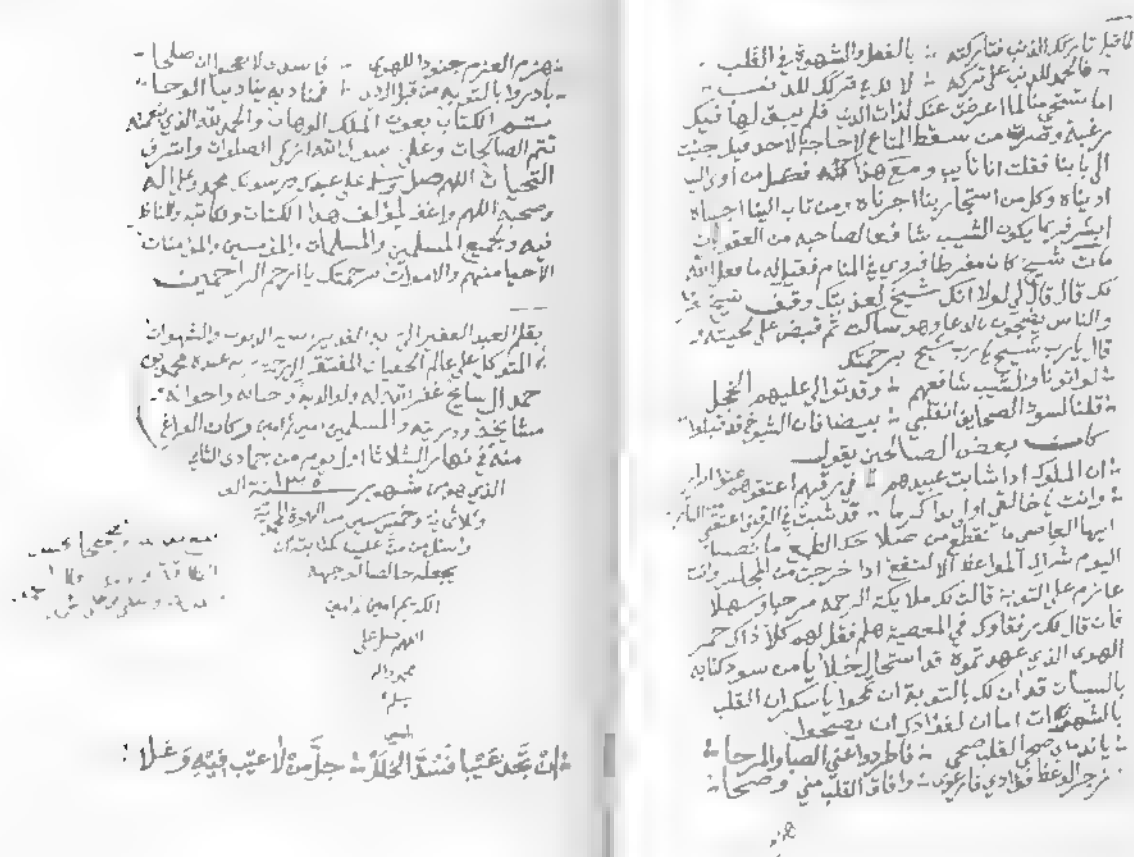 ما قيل تاركك الذنب فتاركته بالفعل والشهوة في القلب
فالحمد للذنب على تركه لا للذي تركك للذنب
اما تستحي منا لما اعرضت عنك لذات الدنيا فلم يبق لها فيك
رغبة وصرت من سقط المتاع لا حاجة لاحد فيك جئت
الى بابنا فقلت انا تايب ومع هذا كله فكل من أوى الينا
اويناه وكل من استجار بنا اجرناه ومن تاب الينا احببناه
ابشر فربما يكون الشيب شافعا لصاحبه من العقوبات
مات شيخ كان مفرطا فروي في المنام فقيل له ما فعل الله
بك قال قال لي لولا انك شيخ لعذبتك وقف شيخ
والناس يضجون بالدعا وهو ساكت ثم قبض على لحيته
قال يارب شيخ يارب شيخ يرجو رحمتك
لما اتونا والشيب شافعهم وقد توالى عليهم الخجل
قلنا لسود الصحايف انقلبي بيضا فان الشيوخ قد قبلوا
كان بعض الصالحين يقول
ان الملوك اذا شابت عبيدهم في رقهم اعتقوهم عتق ابرار
وانت يا خالقي اولى بذا كرما قد شبت في الرق اعتقني
ايها العاصي ما يقطع من صلاحك الطمع ما نصبنا
اليوم شرك المواعظ الا لتقع اذا خرجت من المجلس وانت
عازم على التوبة قالت لك ملايكة الرحمة مرحبا وسهلا
فان قال لك رفقاوك في المعصية هلم فقل لهم كلا ذاك خمر
الهوى الذي عهدتموه قد استحال خلا يا من سود كتابه
بالسيات قد ان لك بالتوبة ان تمحوا يا سكران القلب
بالشهوات اما ان لفوادك ان يصحوا
يا نداماي صحى القلب صحى فاطردوا عني الصبا والمرحا
زجر الوعظ فوادي فارعوى وافاق القلب مني وصحا
هزم العزم جنودا للهوى فاسدي لا تعجبوا ان صلحا
بادروا بالتوبة من قبل الردى فمناديه ينادينا الوحا
تم الكتاب بعون الملك الوهاب والحمد لله الذي بنعمته
تتم الصالحات وعلى رسول الله ازكى الصلوات واشرف
التحيات اللهم صل وسلم على عبدك ورسولك محمد وعلى اله
وصحبه اللهم واغفر لمؤلف هذا الكتاب ولكاتبه وللناظر
فيه ولجميع المسلمين والمسلمات والمؤمنين والمؤمنات
الأحيا منهم والاموات برحمتك يا ارحم الراحمين
بقلم العبد الفقير الى ربه القدير اسير الذنوب والشهوات
المتوكل على عالم الخفيات المفتقر الى رحمة ربه عبده محمد بن
حمد ال سايح غفر الله له ولوالديه واخوانه
مشايخه وذريته والمسلمين امين امين وكان الفراغ
منه في نهار الثلاثا اول يوم من جمادى الثاني
الذي هو من شهور ١٣٥ سنة الف
وثلاثماية وخمسين من الهجرة
واسئل من من علينا بكتابته ان
يجعله خالصا لوجهه
الكريم امين امين
اللهم صل على
محمد واله
وسلم
ان تجد عيبا فسد الخللا جل من لا عيب فيه وعلا